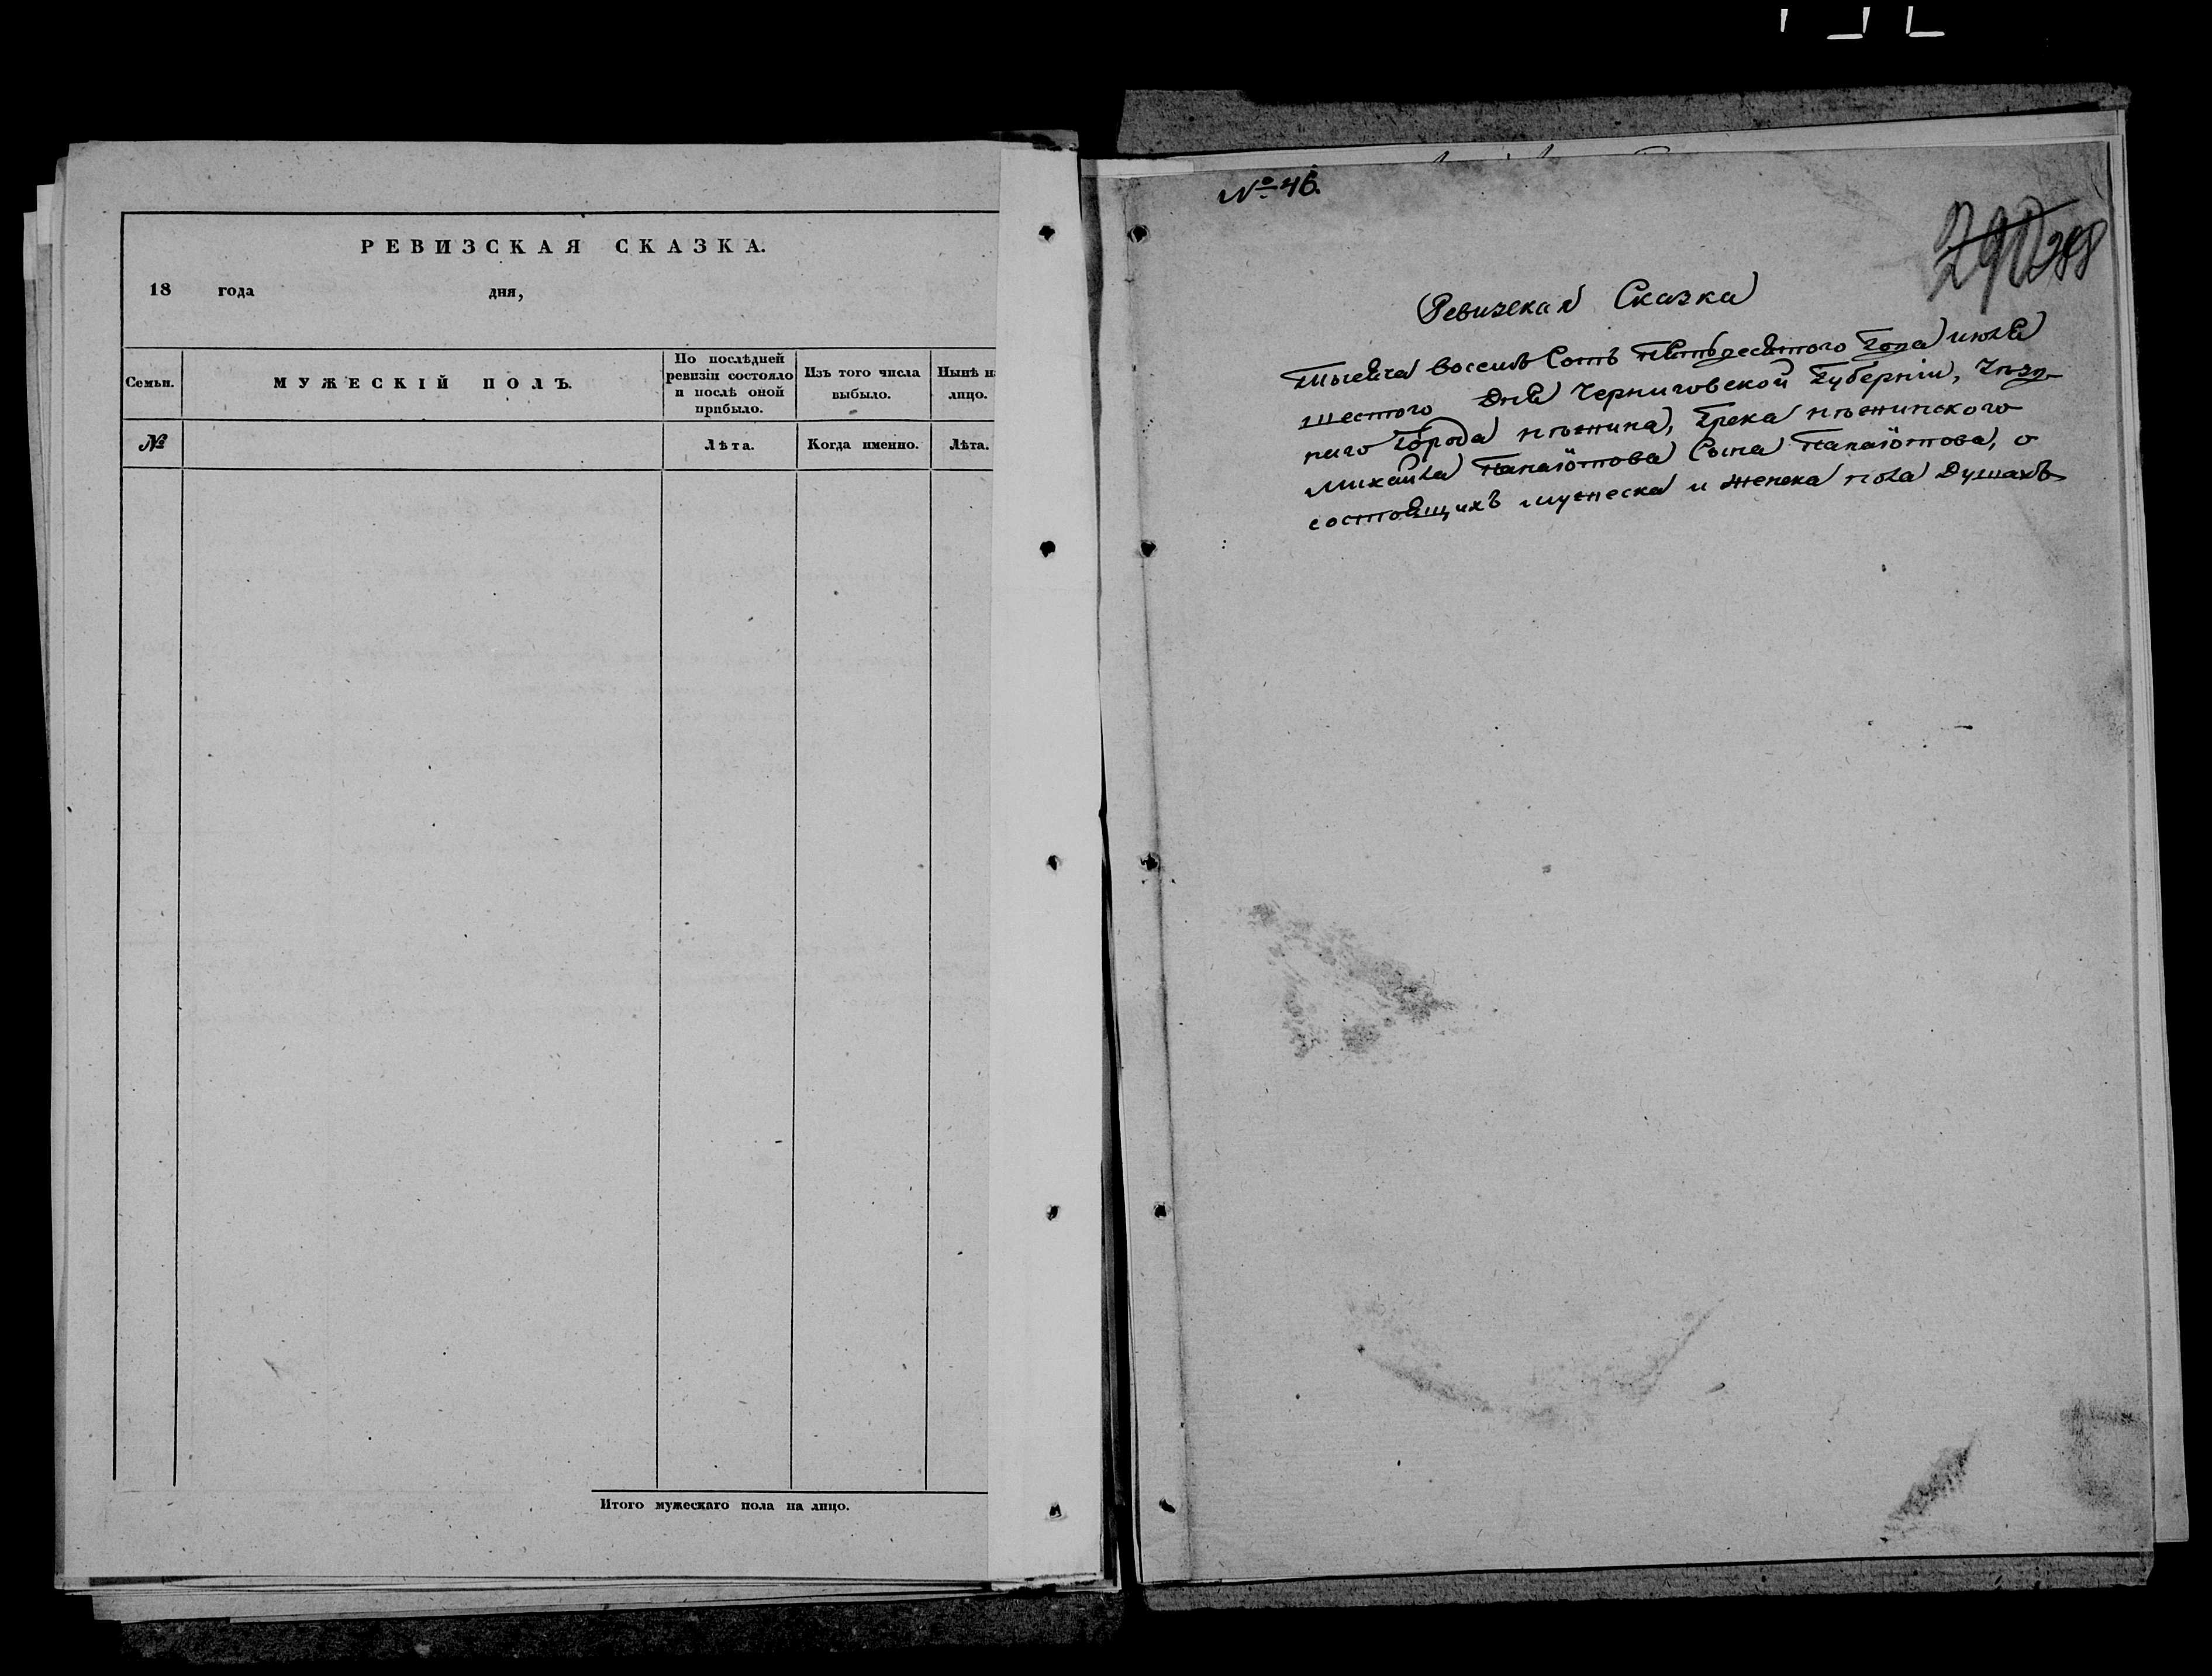 РЕВИЗСКАЯ СКАЗКА.
18 года дня,
Семьи.
МУЖЕСКІЙ ПОЛЪ.
По послѣдней
ревизіи состояло
и послѣ оной
прибыло.
Изъ того числа
выбыло.
Нынѣ н
лицо.
№
Лѣта.
Когда именно.
Лѣта.
Итого мужескаго пола на лицо.
№ 46.
290 288
Ревизская Сказка
Тысяча восемь Сотъ Пятьдесятого Года июля
шестого Дня Черниговской Губерніи, Уѣзд-
наго Города Нѣжина, Грека Нѣжинского
Михаила Панаіотова Сына Панаіотова, о
состоящихъ мужеска и женска пола Душахъ